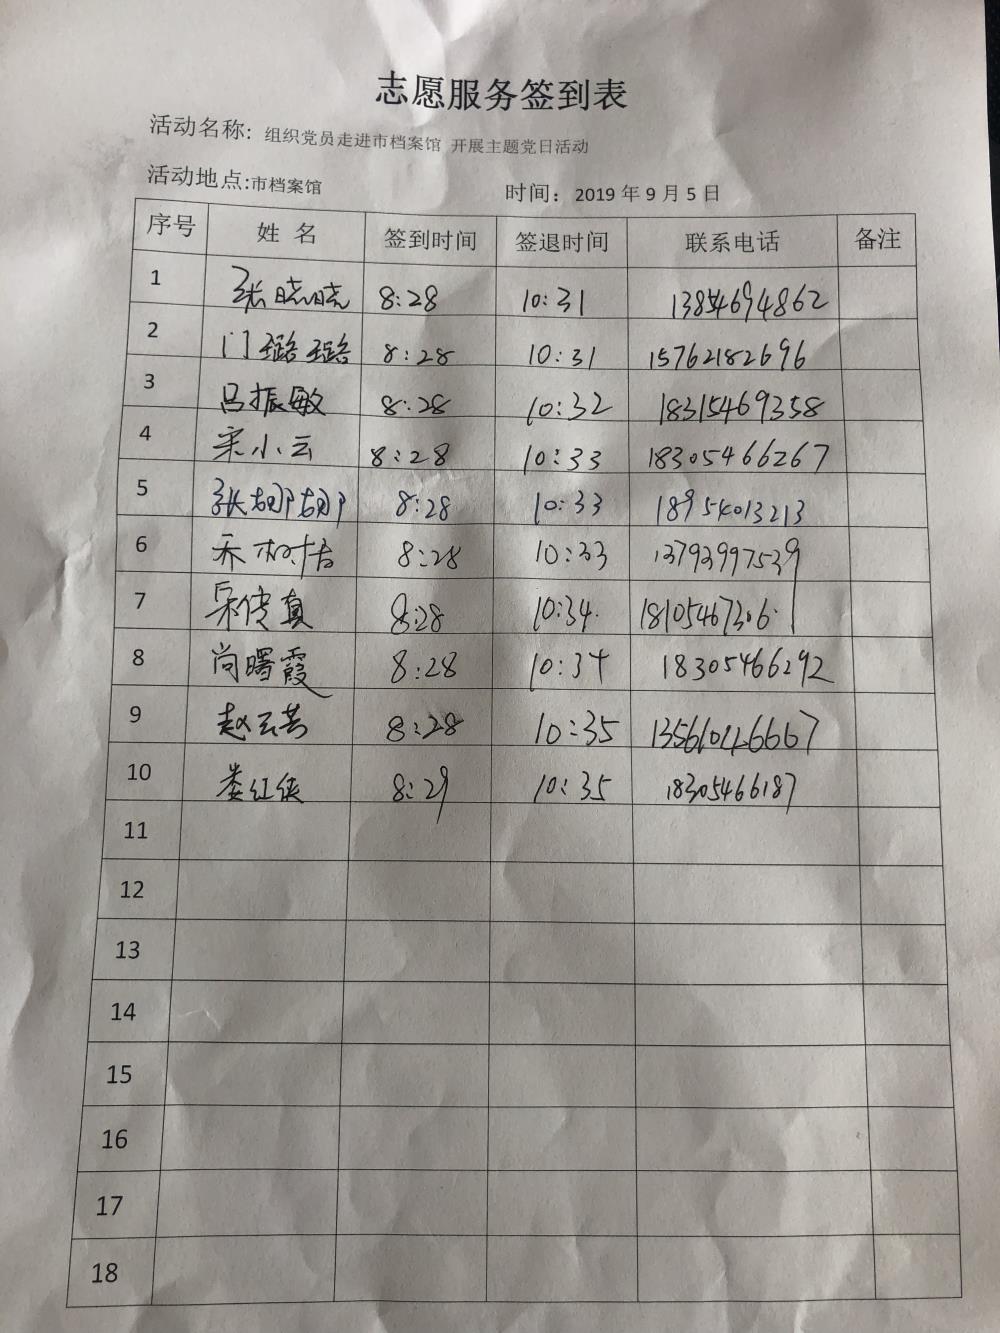 志愿服务签到表
活动名称: 组织党员走进市档案馆 开展主题党日活动
活动地点:市档案馆 时间：2019 年 9 月 5 日
序号 姓 名 签到时间 签退时间 联系电话 备注
1 张晓晓 8:28 10:31 13854694862
2 门璐璐 8:28 10:31 15762182696
3 吕振敏 8:28 10:32 18315469358
4 宋小云 8:28 10:33 18305466267
5 张娜娜 8:28 10:33 18954013213
6 乔树 8:28 10:33 13793997539
7 宋传真 8:28 10:34 18105467306
8 尚曙霞 8:28 10:34 18305466292
9 赵云芸 8:28 10:35 13561046667
10 娄红侠 8:29 10:35 18305466187
11
12
13
14
15
16
17
18